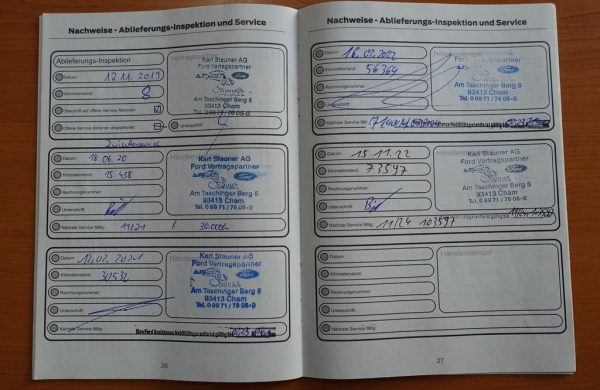 Nachweise - Ablieferungs-Inspektion und Service
Ablieferungs-Inspektion
Datum: 12.11.2019
Kilometerstand: 8
Überprüft auf offene Service Aktionen:
Offene Service Aktionen abgearbeitet:
Unterschrift:
Karl Stauner AG
Ford Vertragspartner
Ford
Am Taschinger Berg 5
93413 Cham
Tel. 0 99 71 / 76 05-0
Zwischenservice
Datum: 18.06.20
Kilometerstand: 15.458
Rechnungsnummer:
Unterschrift:
Nächste Service fällig: 11/21 / 30.000
Karl Stauner AG
Ford Vertragspartner
Ford
Am Taschinger Berg 5
93413 Cham
Tel. 0 99 71 / 76 05-0
Datum: 12.02.2021
Kilometerstand: 30532
Rechnungsnummer:
Unterschrift:
Nächste Service fällig:
Ihre Ford Assistance Mobilitätsgarantie ist gültig bis
Händlerstempel
Karl Stauner AG
Ford Vertragspartner
Ford
Am Taschinger Berg 5
93413 Cham
Tel. 0 99 71 / 76 05-0
26
Nachweise - Ablieferungs-Inspektion und Service
Datum: 16.02.2022
Kilometerstand: 56364
Rechnungsnummer:
Unterschrift:
Nächste Service fällig:
Händlerstempel
Karl Stauner AG
Ford Vertragspartner
Ford
Am Taschinger Berg 5
93413 Cham
Tel. 0 99 71 / 76 05-0
Datum: 15.11.22
Kilometerstand: 73597
Rechnungsnummer:
Unterschrift:
Nächste Service fällig: 11/24 103597
Karl Stauner AG
Ford Vertragspartner
Ford
Am Taschinger Berg 5
93413 Cham
Tel. 0 99 71 / 76 05-0
Datum:
Kilometerstand:
Rechnungsnummer:
Unterschrift:
Nächste Service fällig:
Händlerstempel
27